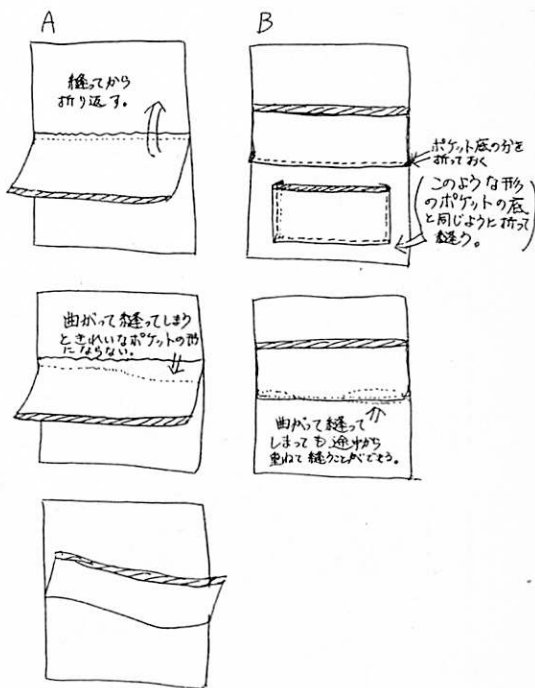 A
縫ってから
折り返す。
曲がって縫ってしまう
ときれいなポケットの形
にならない。
B
ポケット底の分を
折っておく
(このような形
のポケットの底
と同じように折って
縫う。)
曲がって縫って
しまっても、途中から
重ねて縫うことができる。